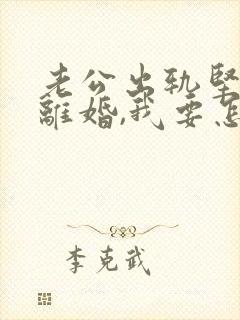 老公出轨坚
離婚,我要怎
李克武